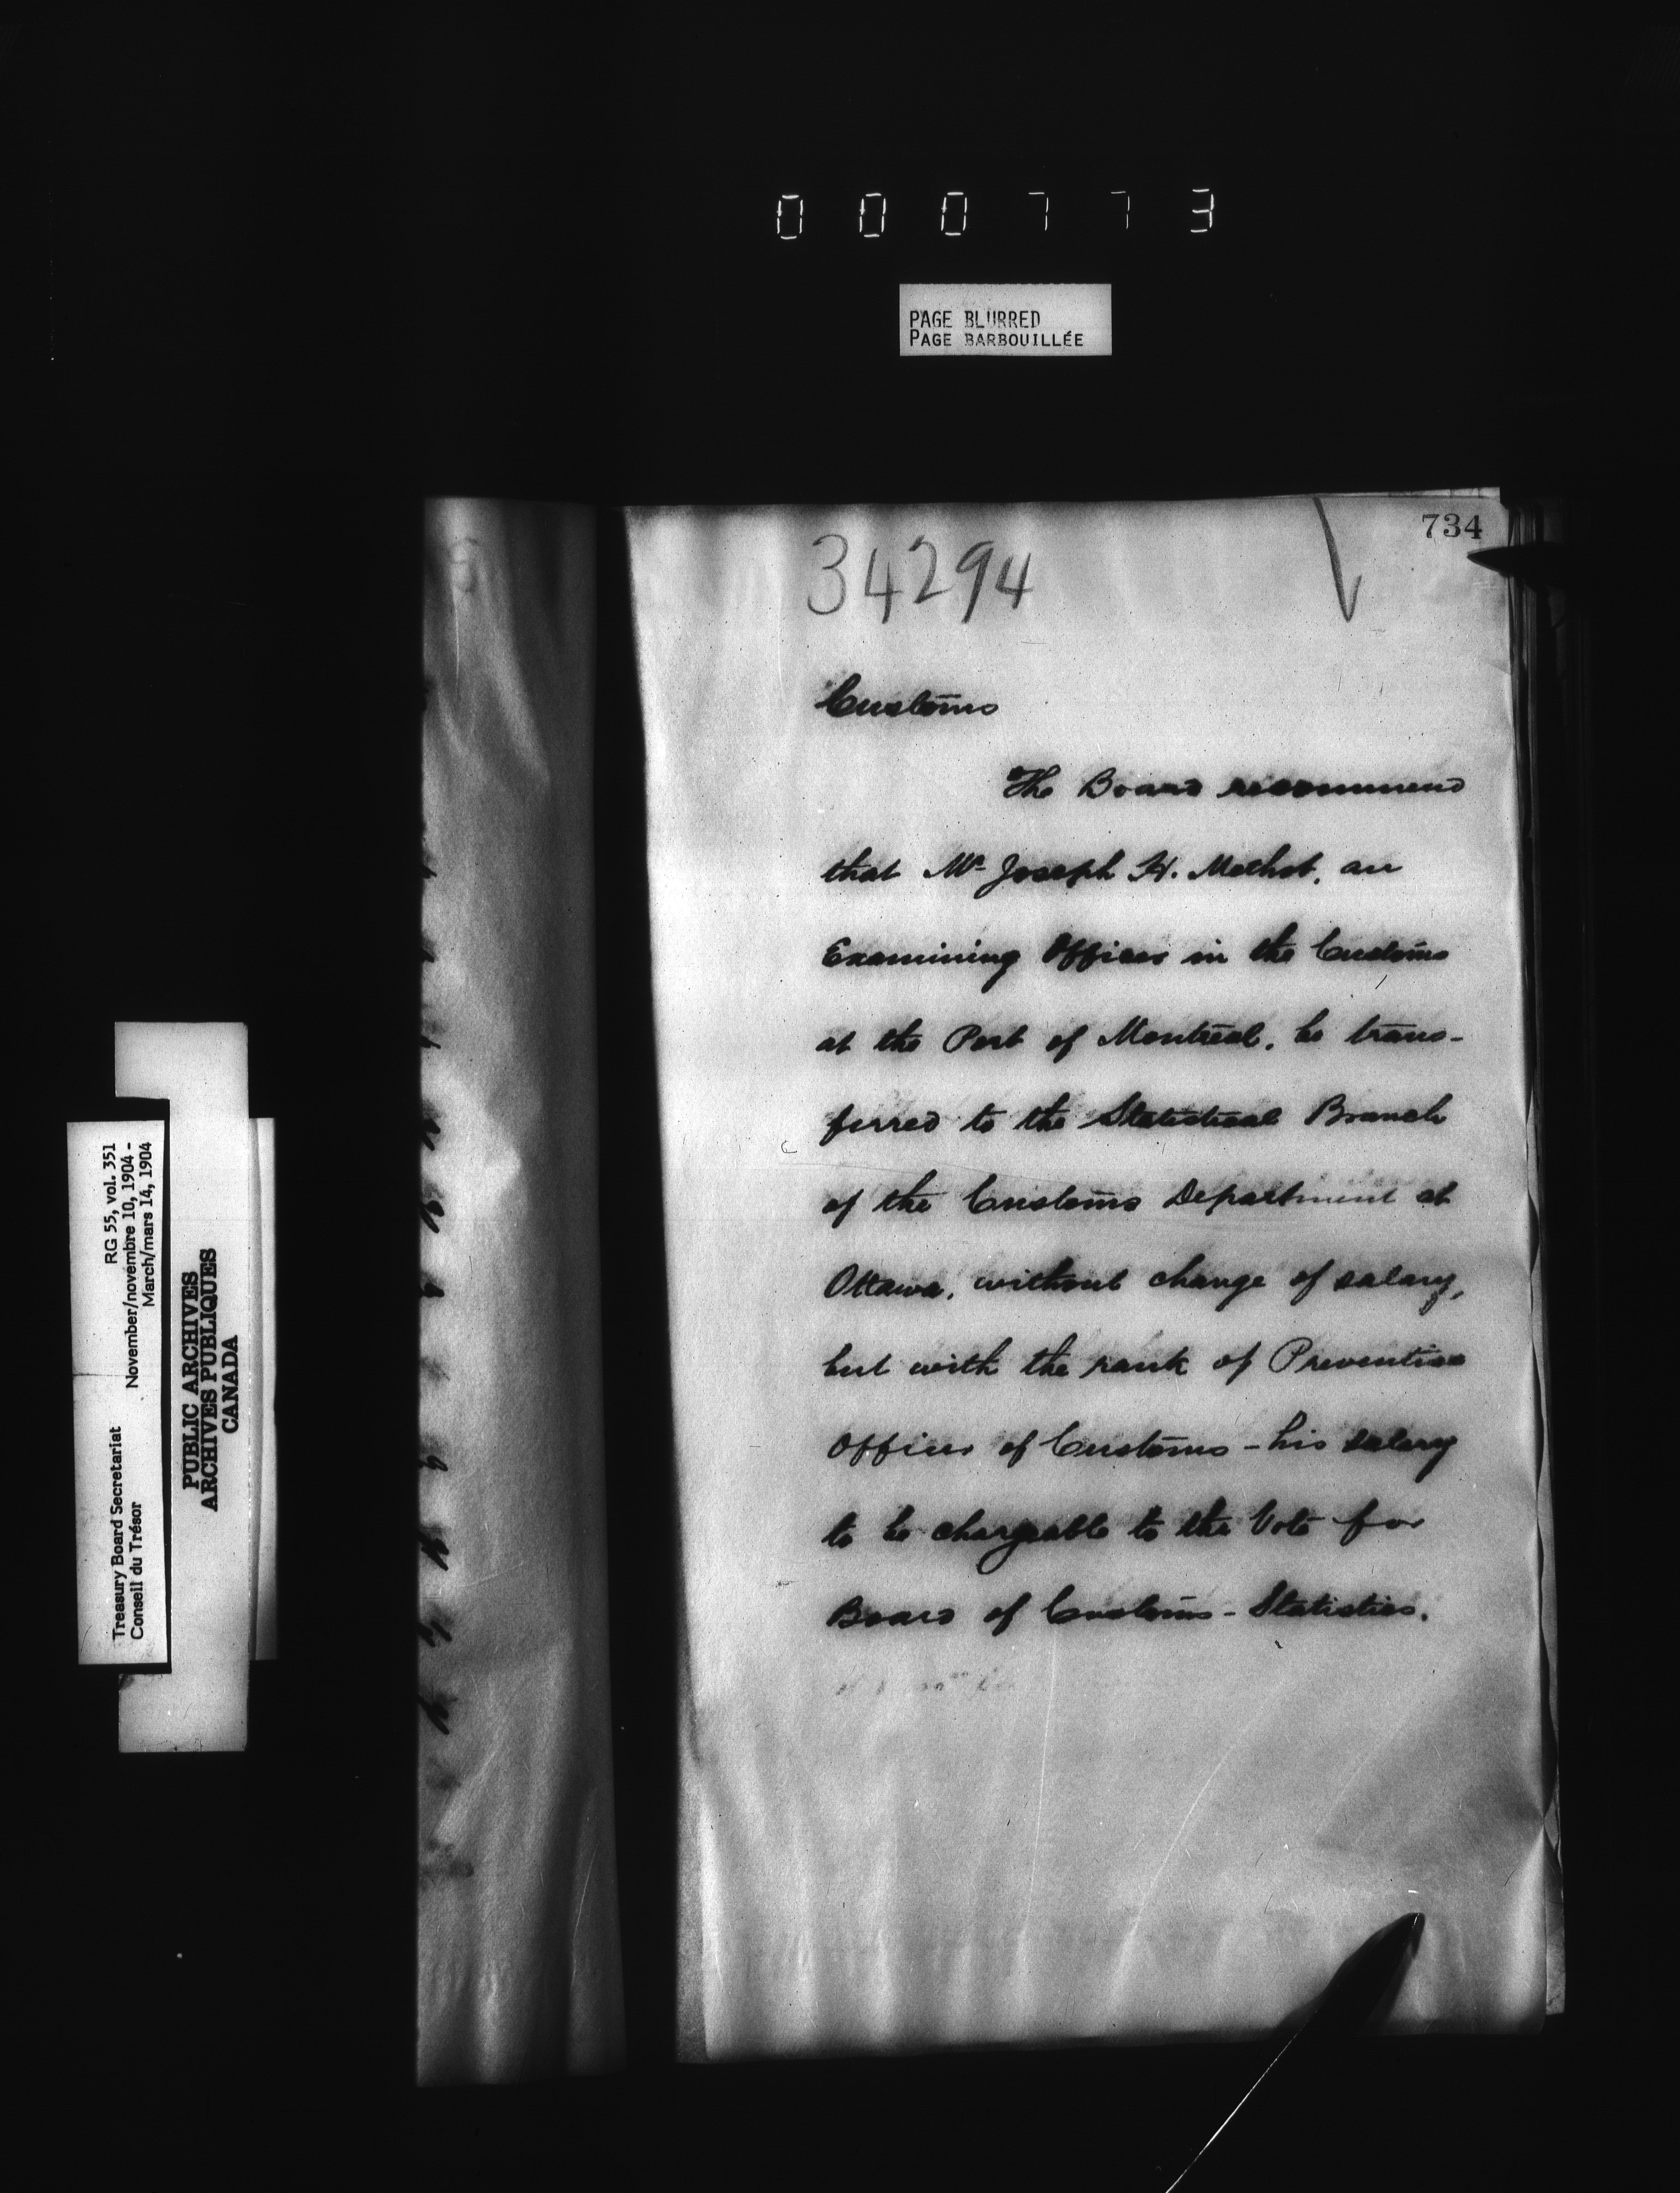 000773
PAGE BLURRED
PAGE BARBOUILLÉE
734
34294
Customs
The Board recommend
that Mr Joseph H. Methot, an
Examining Officer in the Customs
at the Port of Montreal, be trans-
ferred to the Statistical Branch
of the Customs Department at
Ottawa, without change of salary,
but with the rank of Preventive
Officer of Customs - his salary
to be chargeable to the Vote for
Board of Customs - Statistics.
Treasury Board Secretariat RG 55, vol. 351
Conseil du Trésor November/novembre 10, 1904 -
March/mars 14, 1904
PUBLIC ARCHIVES
ARCHIVES PUBLIQUES
CANADA